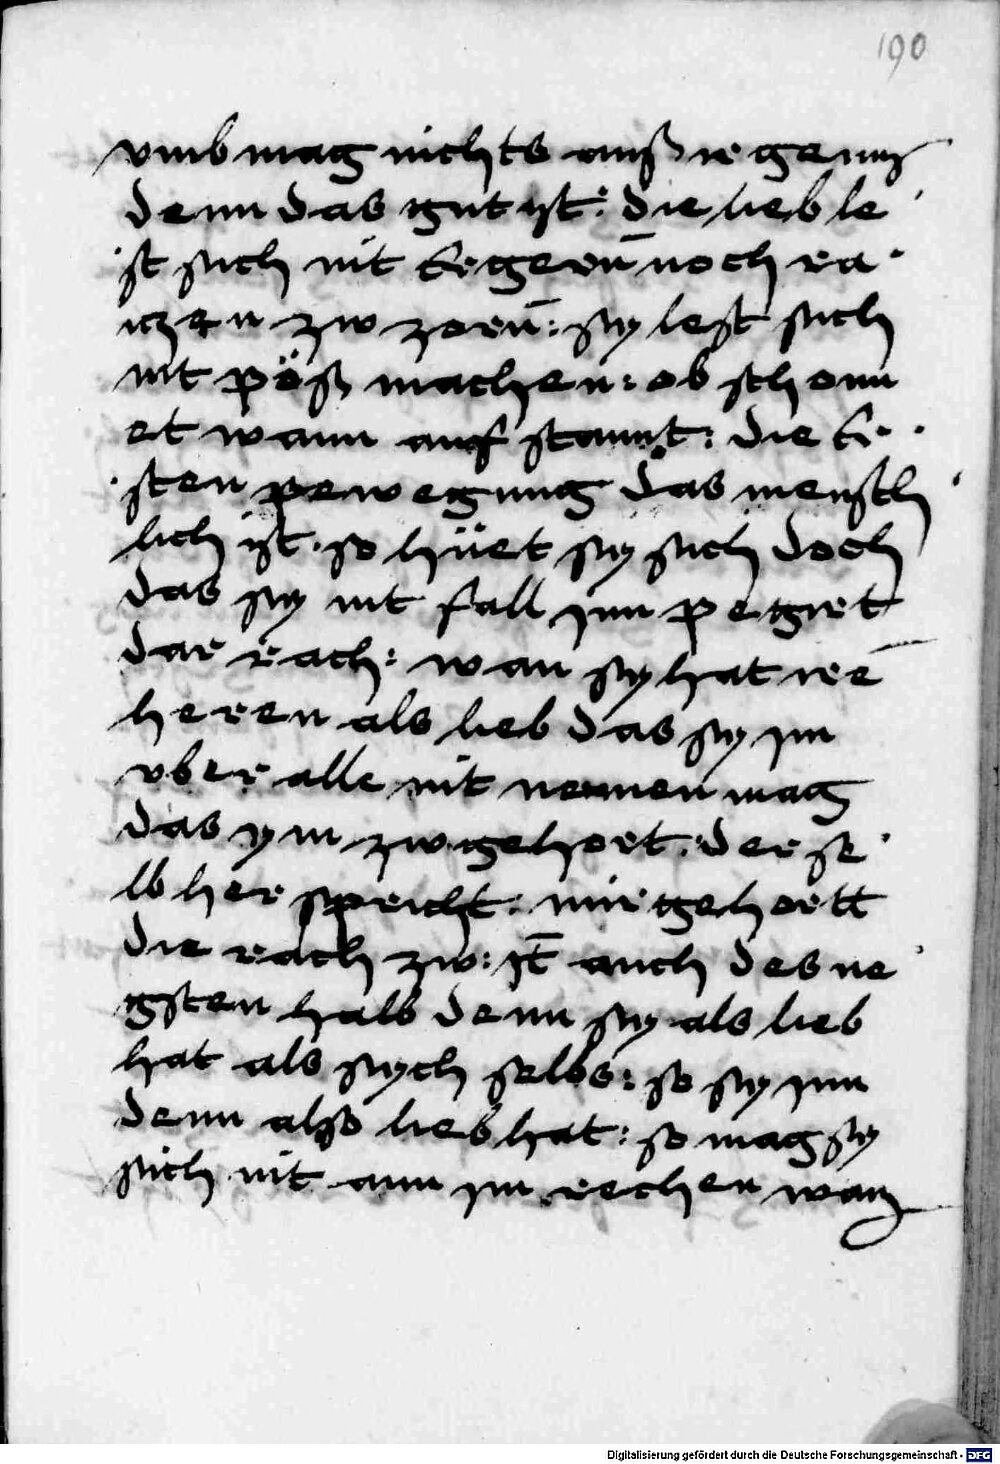 190
vmb mag nichts auß ir genn
denn das gut yst: die lieb le
st sich nit Ergern̄ noch ra
iczen zw zorn̄: sy lest sich
nit pöß machen: ob schonn
et wann auf stannt: die Er
sten pewegung das mensch
lich ist. so hüet sy sich doch
das sy nit fall jnn pegirt
dar rach: wan sy hat irē
heren als lieb das sy jm
vber alle nit nemen mag
das ym zw gehort. der se
lb her spricht: mir gehortt
die rach zw: jt̄ auch des ne
gsten halb denn sy als lieb
hat als sych selbs: so sy jnn
denn also lieb hat: so mag sy
sich nit ann jm rechen wan
Digitalisierung gefördert durch die Deutsche Forschungsgemeinschaft - DFG